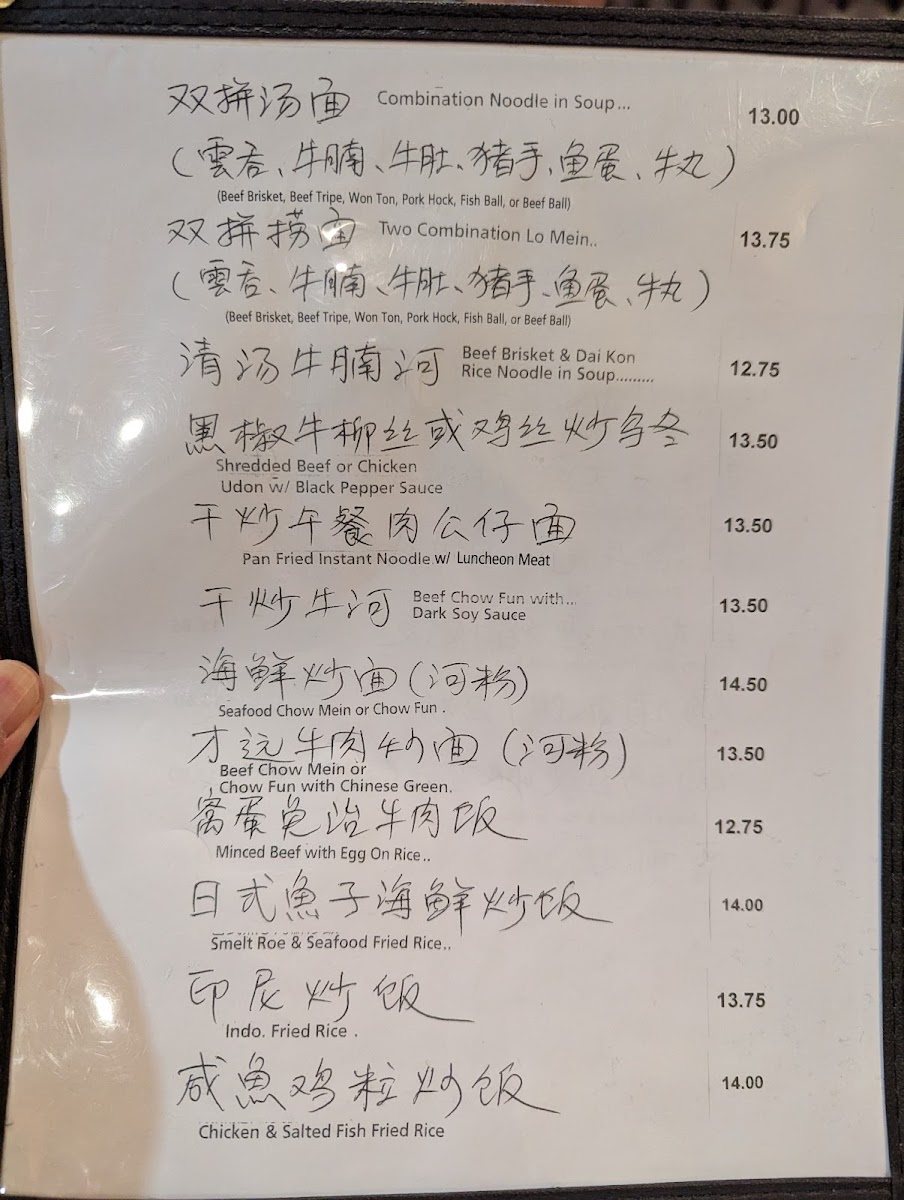 双拼汤面 Combination Noodle in Soup... 13.00
(雲吞、牛腩、牛肚、猪手、鱼蛋、牛丸)
(Beef Brisket, Beef Tripe, Won Ton, Pork Hock, Fish Ball, or Beef Ball)
双拼捞面 Two Combination Lo Mein.. 13.75
(雲吞、牛腩、牛肚、猪手、鱼蛋、牛丸)
(Beef Brisket, Beef Tripe, Won Ton, Pork Hock, Fish Ball, or Beef Ball)
清汤牛腩河 Beef Brisket & Dai Kon
Rice Noodle in Soup......... 12.75
黑椒牛柳丝或鸡丝炒乌冬 13.50
Shredded Beef or Chicken
Udon w/ Black Pepper Sauce
干炒午餐肉公仔面 13.50
Pan Fried Instant Noodle w/ Luncheon Meat
干炒牛河 Beef Chow Fun with...
Dark Soy Sauce 13.50
海鲜炒面(河粉) 14.50
Seafood Chow Mein or Chow Fun .
才远牛肉炒面(河粉) 13.50
Beef Chow Mein or
Chow Fun with Chinese Green.
窝蛋免治牛肉饭 12.75
Minced Beef with Egg On Rice..
日式魚子海鲜炒饭 14.00
Smelt Roe & Seafood Fried Rice..
印尼炒饭 13.75
Indo. Fried Rice .
咸魚鸡粒炒饭 14.00
Chicken & Salted Fish Fried Rice